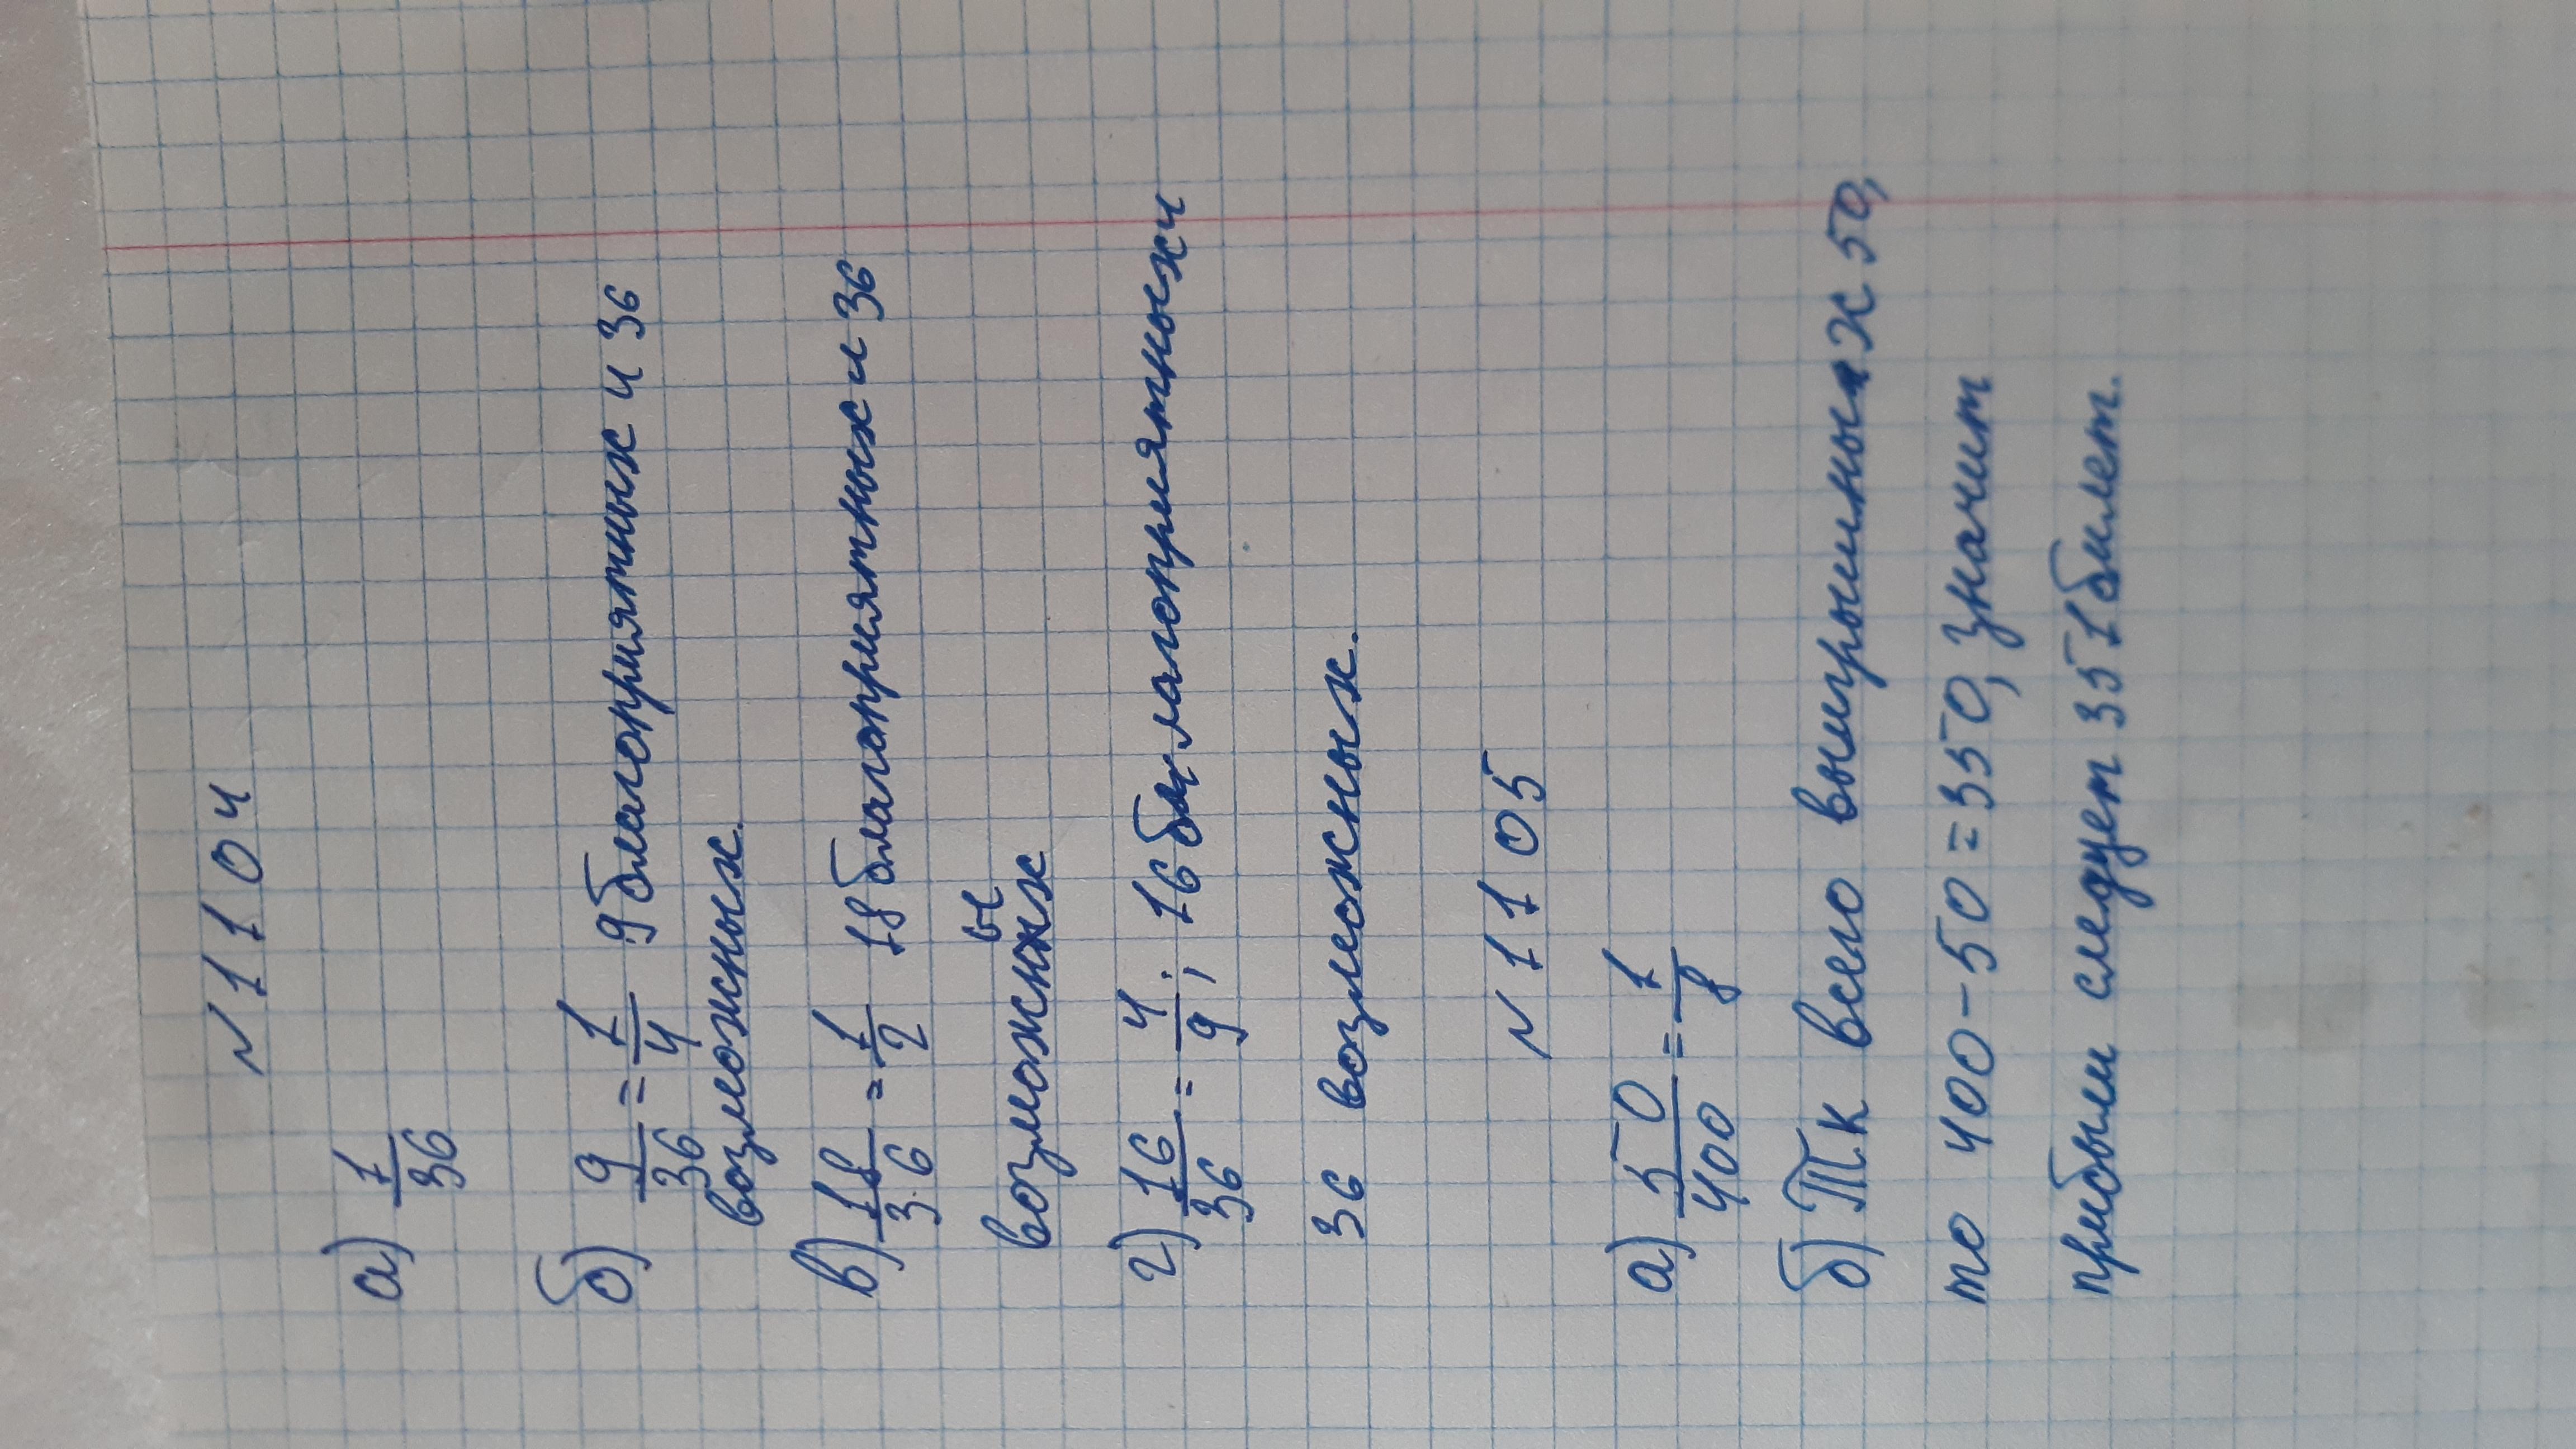 № 1104
а) 1/36
б) 9/36 = 1/4 9 благоприятных и 36
возможных.
в) 18/36 = 1/2 18 благоприятных и 36
возможных
г) 16/36 = 4/9; 16 благоприятных и
36 возможных.
№ 1105
а) 50/400 = 1/8
б) Т.к всего выигрышных 50,
то 400 - 50 = 350, значит
прибыли следует 351 билет.